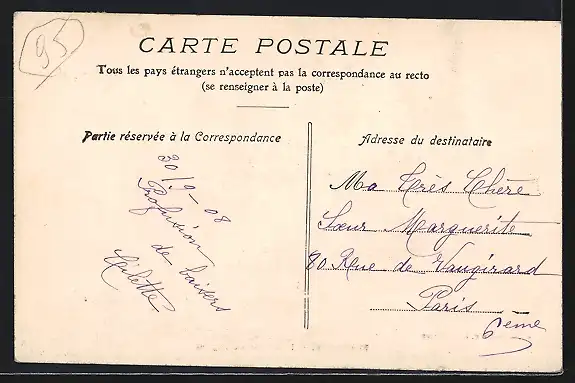 95
CARTE POSTALE
Tous les pays étrangers n'acceptent pas la correspondance au recto
(se renseigner à la poste)
Partie réservée à la Correspondance
30/9-08
Profusion
de baisers
Adresse du destinataire
Ma Très Chère
Sœur Marguerite
80 Rue de Vaugirard
Paris
6ème